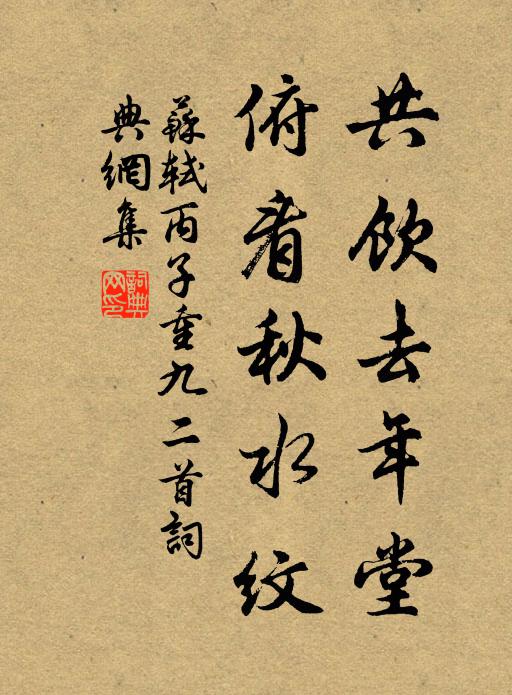 共飲去年堂
俯看秋水紋
蘇軾丙子重九二首詞
典網集
詞典
网印